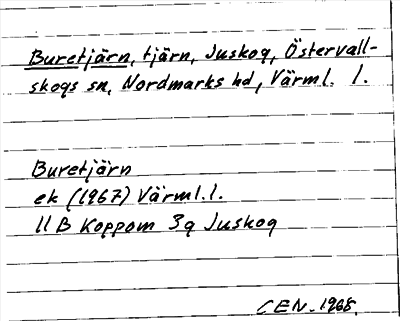 Buretjärn, tjärn, Juskog, Östervall-
skogs sn, Nordmarks hd, Värml. l.
Buretjärn
ek (1967) Värml. l.
11 B Koppom 3 a Juskog
CEN. 1968.